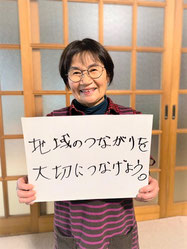 地域のつながりを
大切につなげよう。